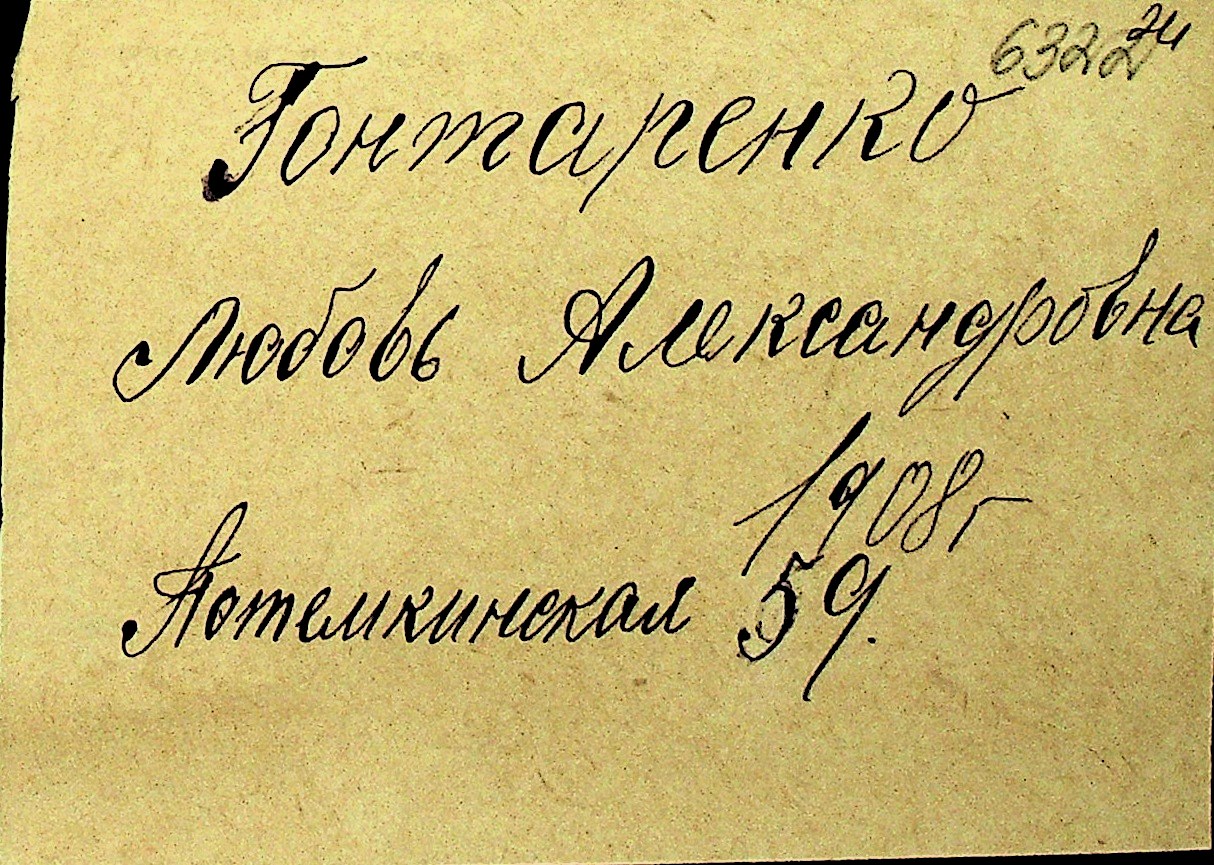 6322 24
Гонтаренко
Любовь Александровна
1908 г
Потемкинская 59.